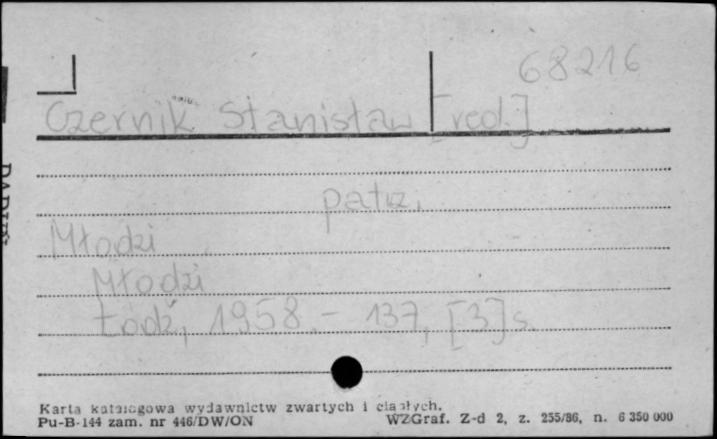 68216
Czernik Stanisław [red.]
patrz.
Młodzi
Młodzi
Łódź, 1958. – 137, [3] s.
Karta katalogowa wydawnictw zwartych i ciągłych.
Pu-B-144 zam. nr 446/DW/ON
WZGraf. Z-d 2, z. 255/86, n. 6 350 000